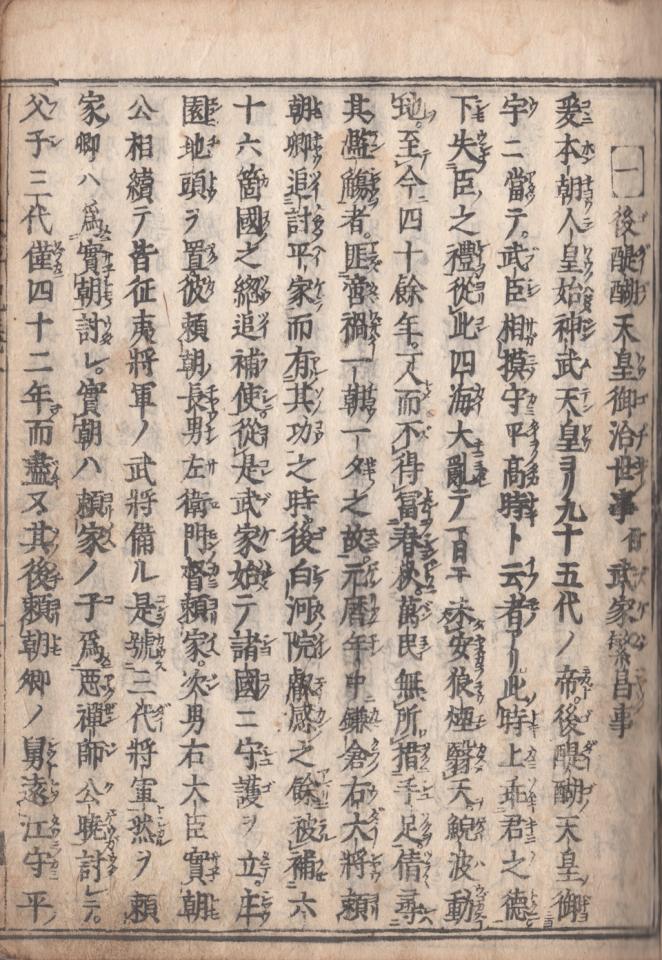 一 後醍醐天皇御治世事 付 武家繁昌事
爰本朝人皇始神武天皇ヨリ九十五代ノ帝。後醍醐天皇御
宇ニ當テ。武臣相摸守平高時ト云者アリ。此時上乖君之德
下失臣之禮。從此四海大亂テ一日モ未安。狼煙翳天。鯢波動
地。至今四十餘年。一人而不得冨春秋。萬民無所措手足。倩尋
其濫觴者。匪啻禍一朝一夕之故。元暦年中鎌倉右大將頼
朝卿追討平家而有其功之時。後白河院叡感之餘被補六
十六箇國之總追補使。從是武家始テ諸國ニ守護ヲ立。庄
園地頭ヲ置。彼頼朝長男左衛門督頼家。次男右大臣實朝
公相續テ皆征夷將軍ノ武將備ル。是號三代將軍。然ヲ頼
家卿ハ爲實朝討レ。實朝ハ頼家ノ子爲悪禪師公曉討レテ。
父子三代僅四十二年而盡。又其後頼朝卿ノ舅遠江守平